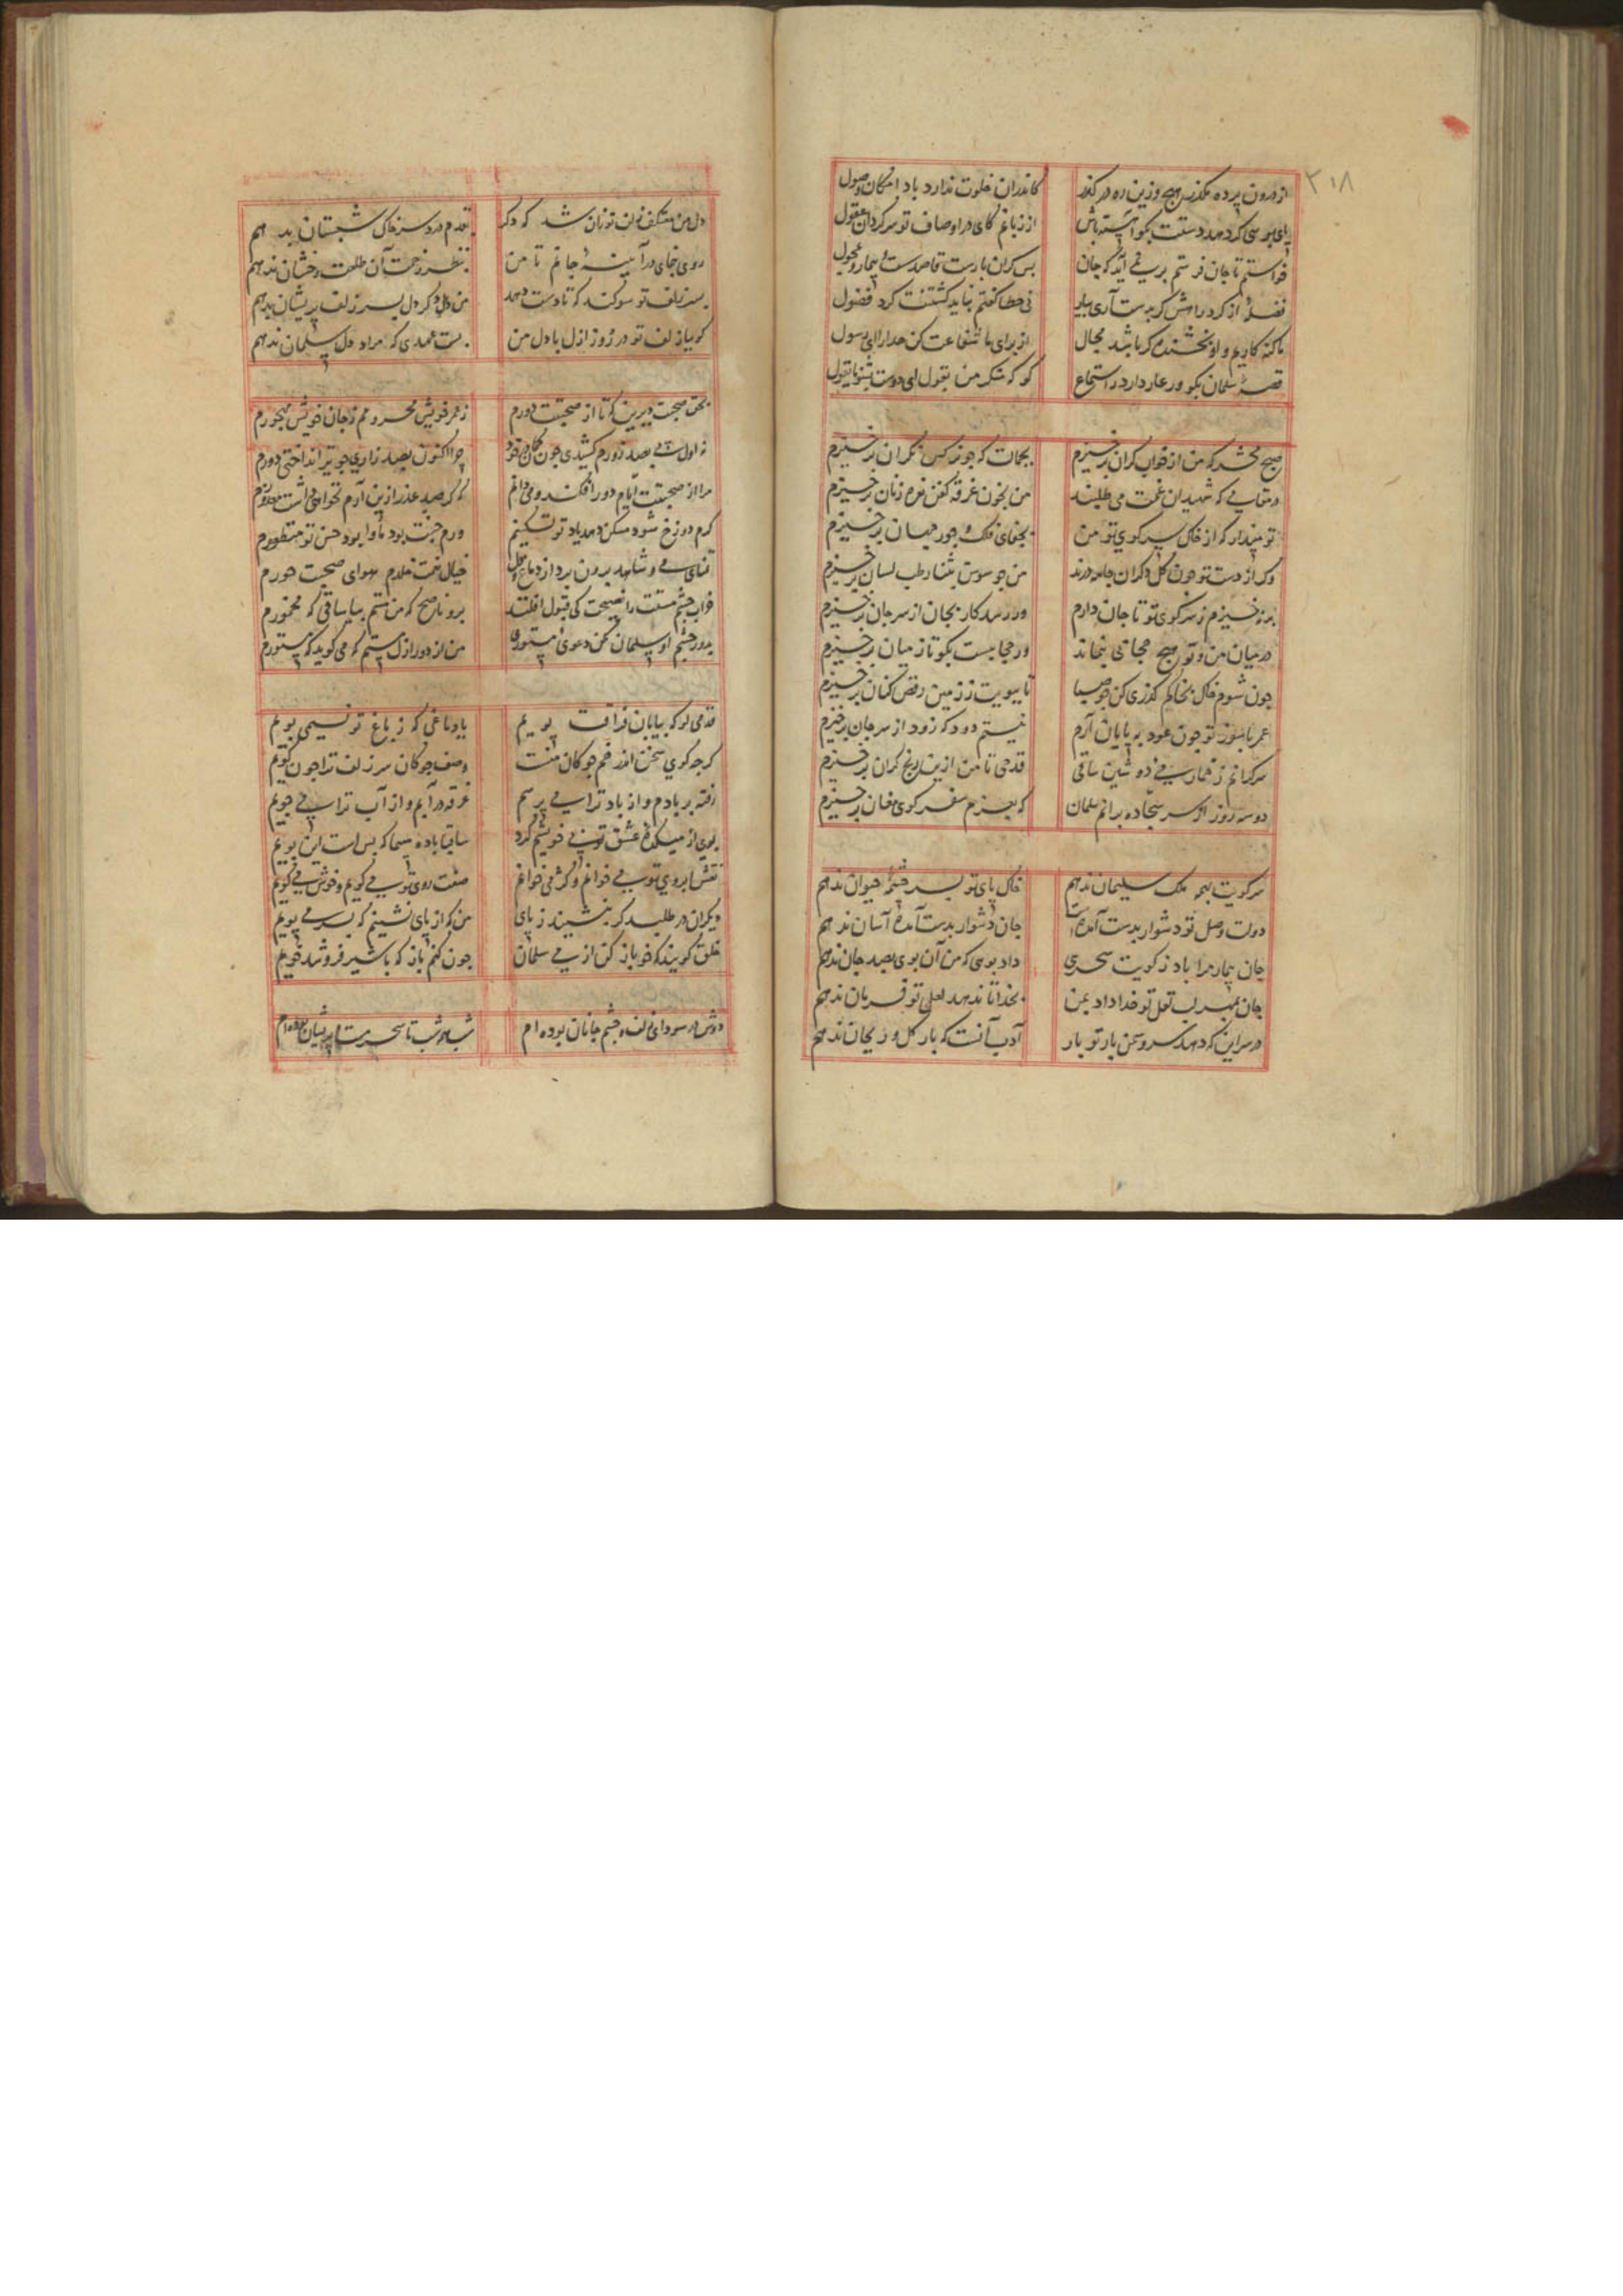 ۳۱۸
از درون پرده مگذر هیچ وزین ره در گذر کاندران خلوت ندارد باد امکان وصول
پای بوسی گر دهد دستت بگو آهسته باش از زبانم کای در اوصاف تو سرگردان عقول
خواستم تا جان فرستم بر نمی آید که جان بس گران بارست قاصد سست و بیمار و عجول
نی خطا گفتم نباید گفتنت کرد فضول
ما گنه کاریم و او بخشنده گر باشد مجال از برای ما شفاعت کن خدا را ای رسول
قصه سلمان بگو ور عار دارد در استماع گو که شکر من بقول ای دوست بشنو یا نقول
صبح محشر که من از خواب گران برخیزم بجمالت که چو نرگس نگران برخیزم
در مقامی که شهیدان غمت می طلبند من بخون غرقه کفن نعره زنان برخیزم
تو مپندار که از خاک سر کوی تو من بجفای فلک و جور جهان برخیزم
وگر از دست تو چون گل دگران جامه درند من چو سوسن بثنا رطب لسان برخیزم
برنخیزم ز سر کوی تو تا جان دارم ور رسد کار بجان از سر جان برخیزم
در میان من و تو هیچ حجابی بنماند ور حجابیست بگو تا ز میان برخیزم
چون شوم خاک بخاکم گذری کن چو صبا تا ببویت ز زمین رقص کنان برخیزم
عمر با سوز تو چون عود بپایان آرم نیستم دود که زود از سر جان برخیزم
سرگرانم ز خمار می دوشین ساقی قدحی تا من ازین رنج گران برخیزم
دو سه روز از سر سجاده برانم سلمان که بعزم سفر کوی مغان برخیزم
سر کویت بهمه ملک سلیمان ندهم خاک پای تو بسر چشمه حیوان ندهم
دولت وصل تو دشوار بدست آمده است جان دشوار بدست آمده آسان ندهم
جان بیمار مرا باد ز کویت سحری داد بوسی که من آن بوی بصد جان ندهم
جان بمهر لب لعل تو خدا داد بمن بخدا تا ندهد لعل تو فرمان ندهم
در سر این که دهد سرو سهی بار تو بار ادب آنست که بار گل و ریحان ندهم
دل من معتکف زلف تو زان شد که دگر قدم درد سر خاک شبستان بدهم
روی بنمای در آیینه جانم تا من نظر زحمت آن طلعت رخشان ندهم
بسر زلف تو سوگند که تا دست دهد من دل دگر دل بسر زلف پریشان ندهم
گوییا زلف تو در روز ازل با دل من بست عهدی که مراد دل سلمان ندهم
بحق صحبت دیرین که تا از صحبتت دورم ز عمر خویش محروم ز جان خویش مهجورم
نه اول می بصد زورم کشیدی چون کمان در خود چرا اکنون بصد زاری چو تیر انداختی دورم
مرا از صحبتت ایام دور افکند و می دانم که گر صد عذر ازین آرم نخواهی داشت معذورم
گرم دوزخ شود مسکن دهد یاد تو تسکینم ورم جنت بود ماوا بود حسن تو منظورم
تمنای می و شاهد برون برد از دماغ دل خیال جنت خلدم هوای صحبت حورم
خراب چشم مستت را نصیحت کی قبول افتد برو ناصح که من مستم بیا ساقی که مخمورم
بدور چشم او سلمان مکن دعوی مستوری من از دور ازل مستم که می گوید که مستورم
قدمی کو که بیابان فراقت پویم یا دماغی که ز باغ تو نسیمی بویم
گرچه گوی سخن اندر خم چوگان منست وصف چوگان سر زلف ترا چون گویم
رفته بر بادم و از باد ترا می پرسم غرقه در آبم و از آب ترا می جویم
بوی از میکده عشق تو بی خویشم کرد ساقیا باده مپیما که بس است این بویم
نقش ابروی تو می خوانم و کژ می خوانم صفت روی تو می گویم و خوش می گویم
دیگران در طلبت گر بنشینند ز پای من که از پای نشینم که بسر می پویم
خلق گویند که خو باز کن از می سلمان چون کنم باز که با شیر فرو شد خویم
دوش در سودای زلف و چشم جانان بوده ام شب همه شب تا سحر مست و پریشان بوده ام